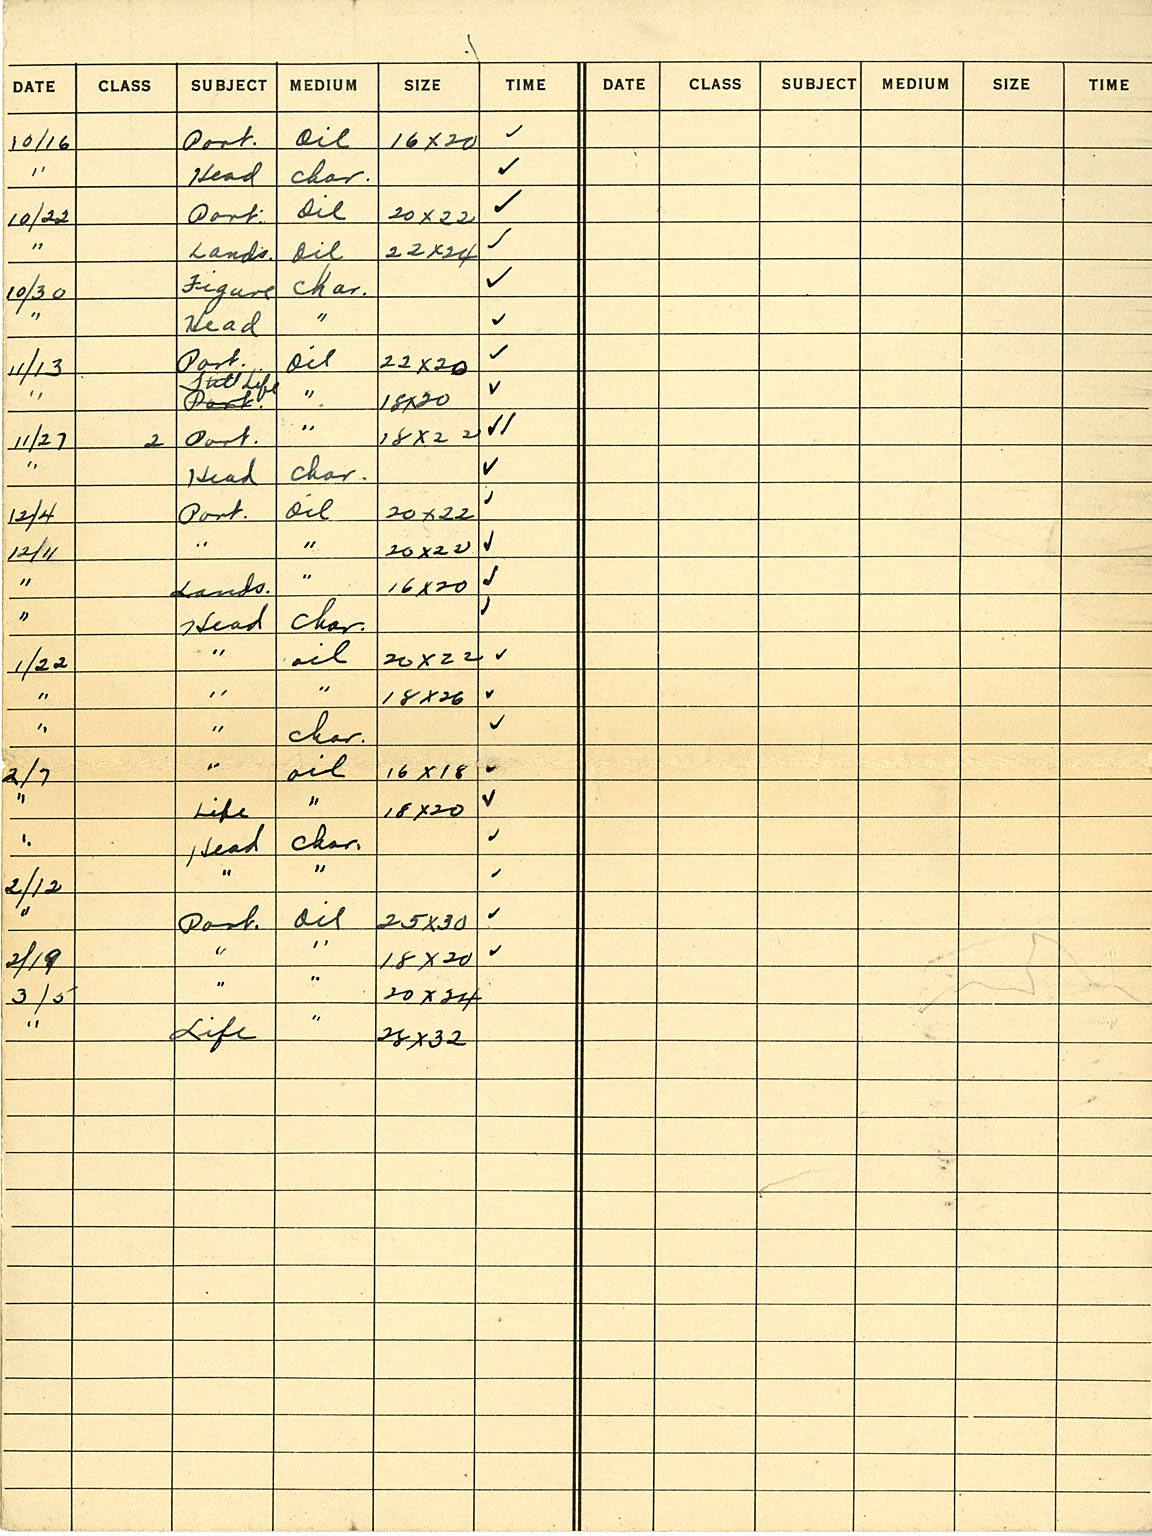 DATE CLASS SUBJECT MEDIUM SIZE TIME DATE CLASS SUBJECT MEDIUM SIZE TIME
10/16 Port. Oil 16X20 ✓
" Head char. ✓
10/22 Port. Oil 20X22 ✓
" Lands. Oil 22X24 ✓
10/30 Figure char. ✓
" Head " ✓
11/13 Port. Oil 22X20 ✓
Still Life
" Port. " 18X20 ✓
11/27 2 Port. " 18X22 ✓✓
" Head char. ✓
12/4 Port. Oil 20X22 ✓
12/11 " " 20X22 ✓
" Lands. " 16X20 ✓
" Head char. ✓
1/22 " oil 20X22 ✓
" " " 18X26 ✓
" " char. ✓
2/7 " oil 16X18 ✓
" Life " 18X20 ✓
" Head char. ✓
2/12 " " ✓
" Port. Oil 25X30 ✓
2/19 " " 18X20 ✓
3/5 " " 20X24
" Life " 28X32